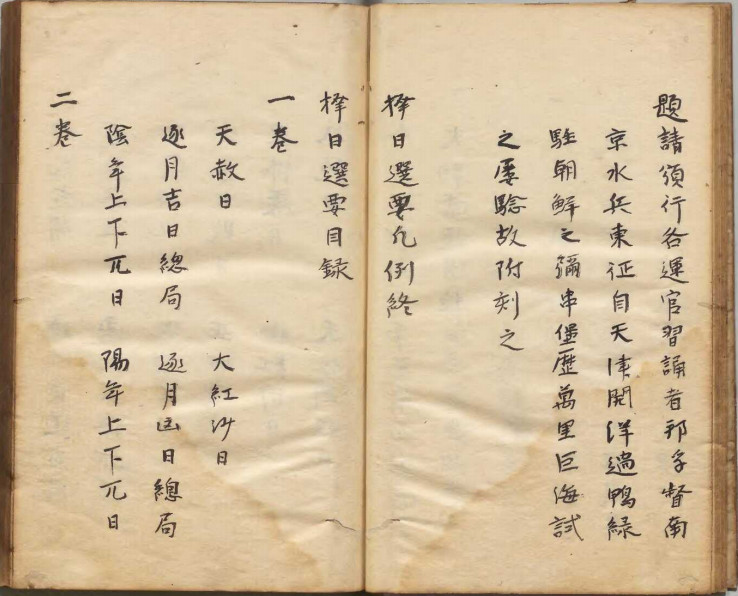 題請頒行各運官習誦者邦孚督南
京水兵東征自天津開洋過鴨緑
駐朝鮮之彌串堡歷萬里巨海試
之屢驗故附刻之
擇日選要凡例終
擇日選要目録
一卷
天赦日 大紅沙日
逐月吉日總局 逐月凶日總局
陰年上下兀日 陽年上下兀日
二卷